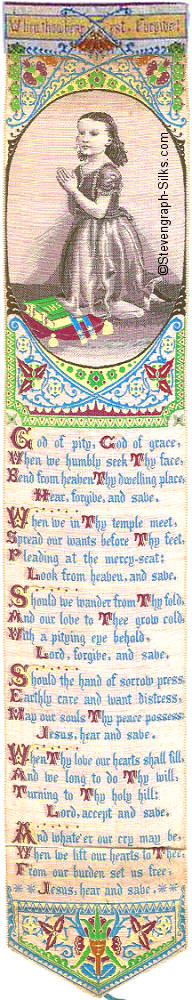 When thou hearest, Forgive!
©Stevengraph-Silks.com
God of pity, God of grace,
When we humbly seek Thy face,
Bend from heaven Thy dwelling place,
Hear, forgive, and save.
When we in Thy temple meet,
Spread our wants before Thy feet,
Pleading at the mercy-seat:
Look from heaven, and save.
Should we wander from Thy fold,
And our love to Thee grow cold,
With a pitying eye behold,
Lord, forgive, and save.
Should the hand of sorrow press,
Earthly care and want distress,
May our souls Thy peace possess
Jesus, hear and save.
When Thy love our hearts shall fill,
And we long to do Thy will,
Turning to Thy holy hill:
Lord, accept and save.
And whate'er our cry may be,
When we lift our hearts to Thee,
From our burden set us free,
Jesus, hear and save.